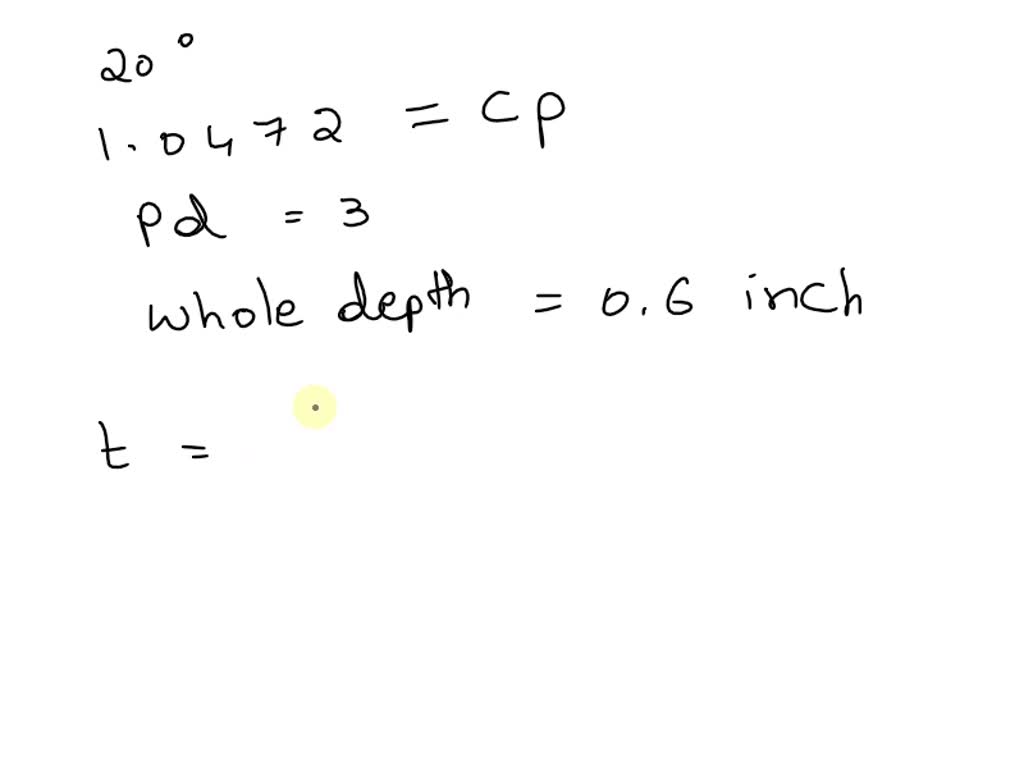 20°
1.0472 = CP
Pd = 3
whole depth = 0.6 inch
t =